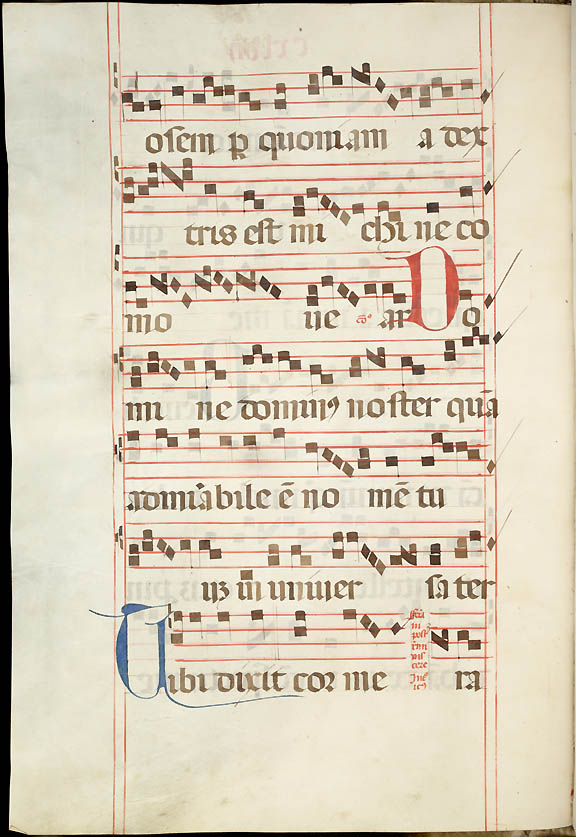 osem p̱ quoniam a dex
tris est mi chi ne co
mo ue ar Do
mi ne dominꝰ noster quā
admirābile ē no mē tu
uꝫ in univer sa ter
Tibi dixit cor me ra